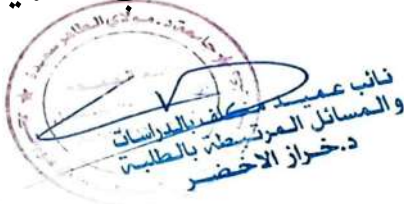 جامعة د. مولاي الطاهر سعيدة
نائب عميد مكلف بالدراسات
والمسائل المرتبطة بالطلبة
د. خراز الاخضر